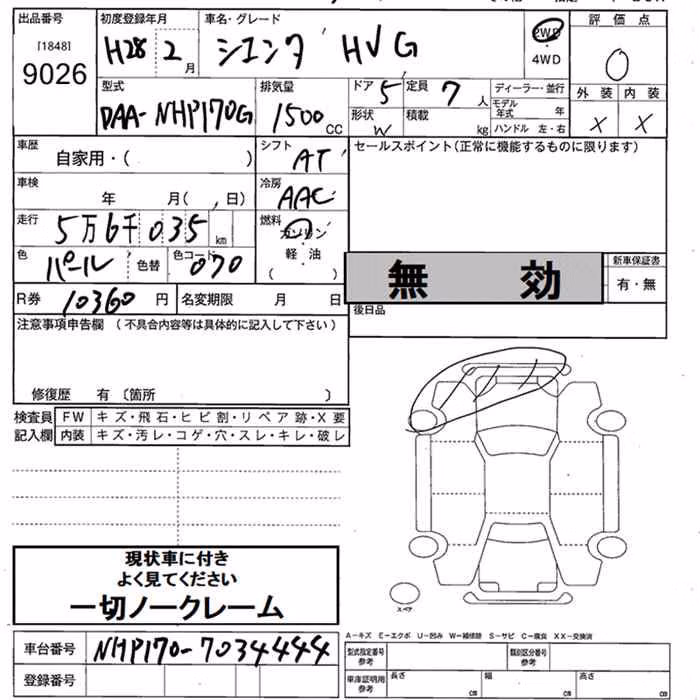 出品番号 初度登録年月 車名・グレード 評価点
[1848] 9026 H28 2月 シエンタ HV G 2WD 4WD 0
外装 内装
型式 排気量 ドア 5 定員 7人 ディーラー・並行
DAA-NHP170G 1500cc 形状 W 積載 kg モデル年式 年 X X
ハンドル 左・右
車歴 自家用・( ) シフト AT セールスポイント(正常に機能するものに限ります)
車検 年 月( , 日) 冷房 AAC
走行 5万6千035km 燃料 ガソリン
色 パール 色替 色コード 070 軽・油 無効 新車保証書
( ) 有・無
R券 10360円 名変期限 月 日 後日品
注意事項申告欄 (不具合内容等は具体的に記入して下さい)
修復歴 有 〔箇所 〕
検査員 FW キズ・飛石・ヒビ割・リペア跡・X要
記入欄 内装 キズ・汚レ・コゲ・穴・スレ・キレ・破レ
現状車に付き
よく見てください
一切ノークレーム
スペア
A-キズ E-エクボ U-凹み W-補修跡 S-サビ C-腐食 XX-交換済
車台番号 NHP170-7034444 型式指定番号 参考 類別区分番号 参考
登録番号 車庫証明用 参考 長さ cm 幅 cm 高さ cm